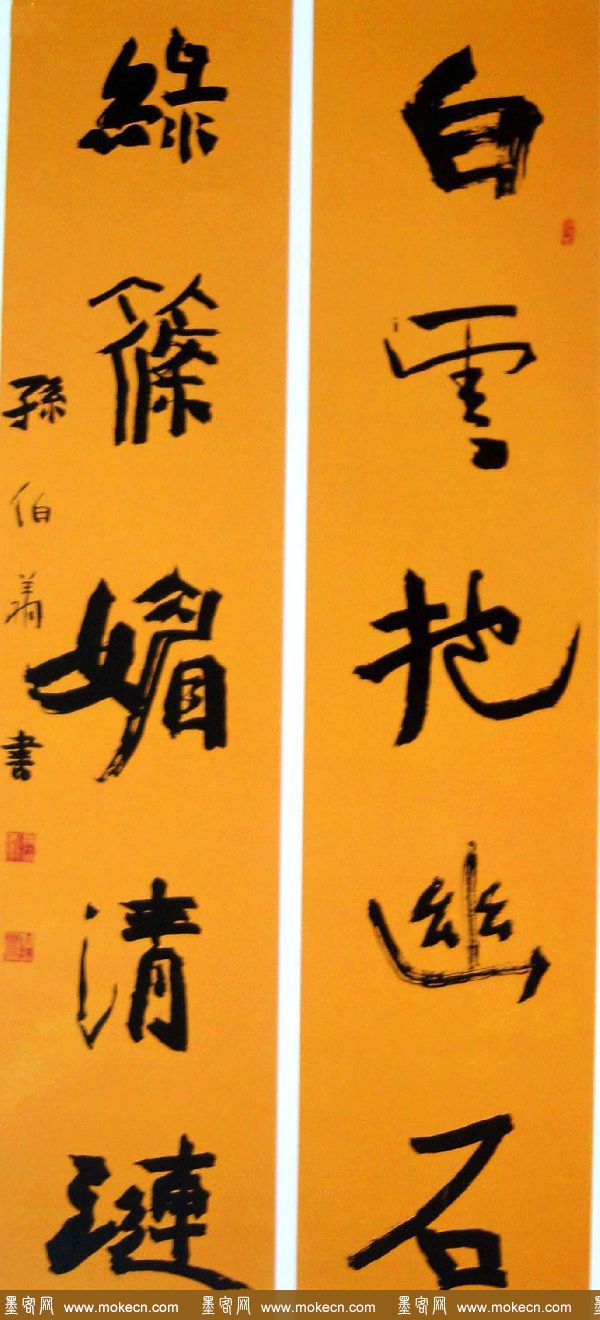 白雲抱幽石
綠篠媚清璉
孫伯翔書
墨客网 www.mokecn.com 墨客网 www.mokecn.com 墨客网 www.mokecn.com